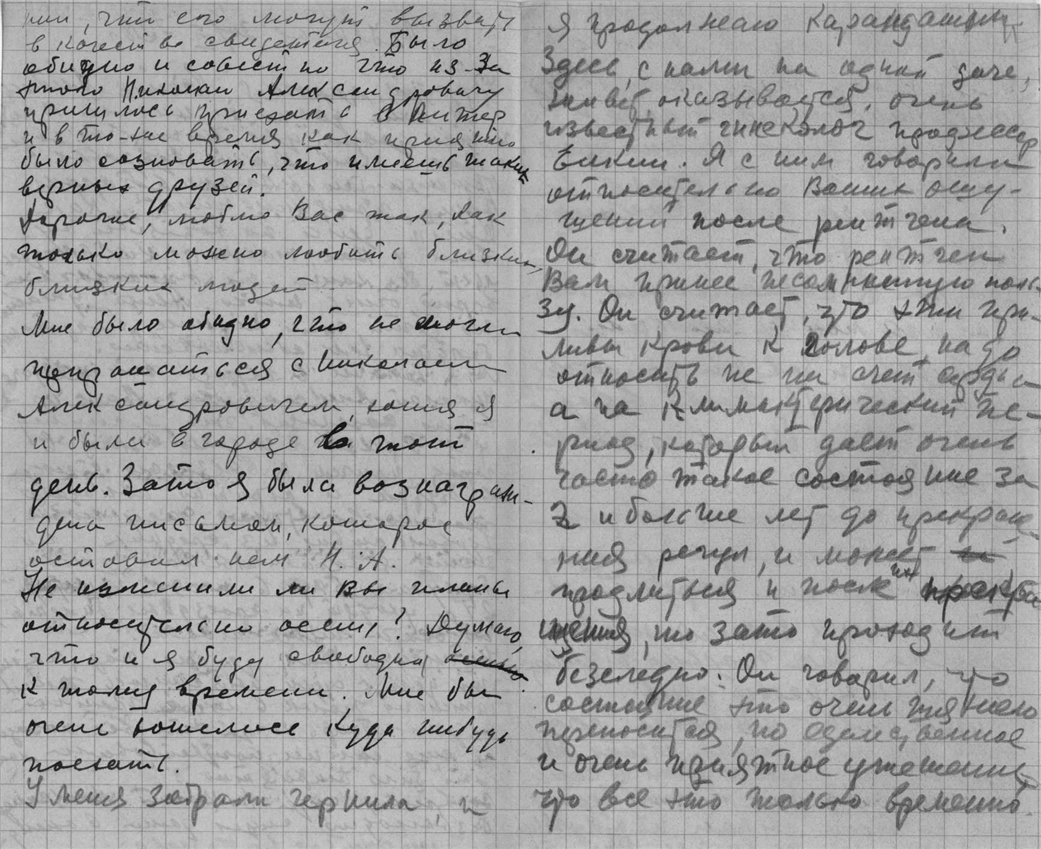 что его могут вызвать
в качестве свидетеля. Было
обидно и совестно что из-за
этого Николаю Александровичу
пришлось приехать в Питер
и в то-же время как приятно
было сознавать, что имеешь таких
верных друзей.
Дорогие, люблю Вас так, как
только можно любить близких,
близких людей
Мне было обидно, что не могла
попрощаться с Николаем
Александровичем, хотя я
и была в городе в тот
день. Зато я была вознаграж-
дена письмом, которое
оставил нам Н. А.
Не изменили ли Вы планы
относительно осени? Думаю,
что и я буду свободна
к тому времени. Мне бы
очень хотелось куда нибудь
поехать.
У меня забрали чернила, и
я продолжаю карандашом.
Здесь, с нами на одной даче,
живет оказывается, очень
известный гинеколог профессор
Я с ним говорила
относительно Ваших ощу-
щений после рентгена.
Он считает, что рентген
Вам принес несомненную поль-
зу. Он считает, что эти при-
ливы крови к голове, надо
относить не на счет сердца
а на климактерический пе-
риод, который дает очень
часто такое состояние за
2 и больше лет до прекраще-
ния регул, и может
продлиться и после их прекра-
щения, но зато проходит
безследно. Он говорил, что
состояние это очень тяжело
переносится, но единственное
и очень приятное утешение,
что все это только временно.